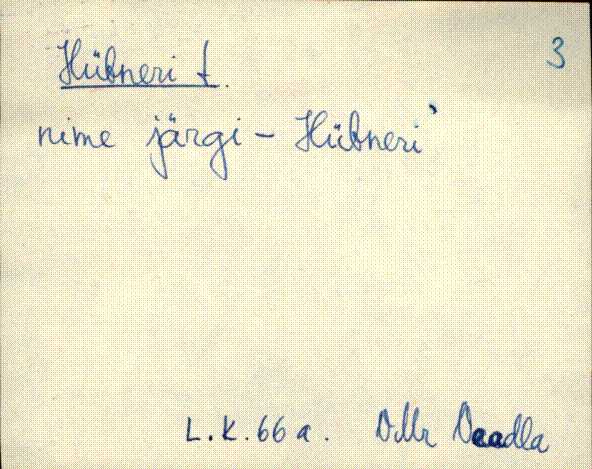 Hübneri t. 3
nime järgi – Hübneri`
L.K. 66 a. VMr Vaadla